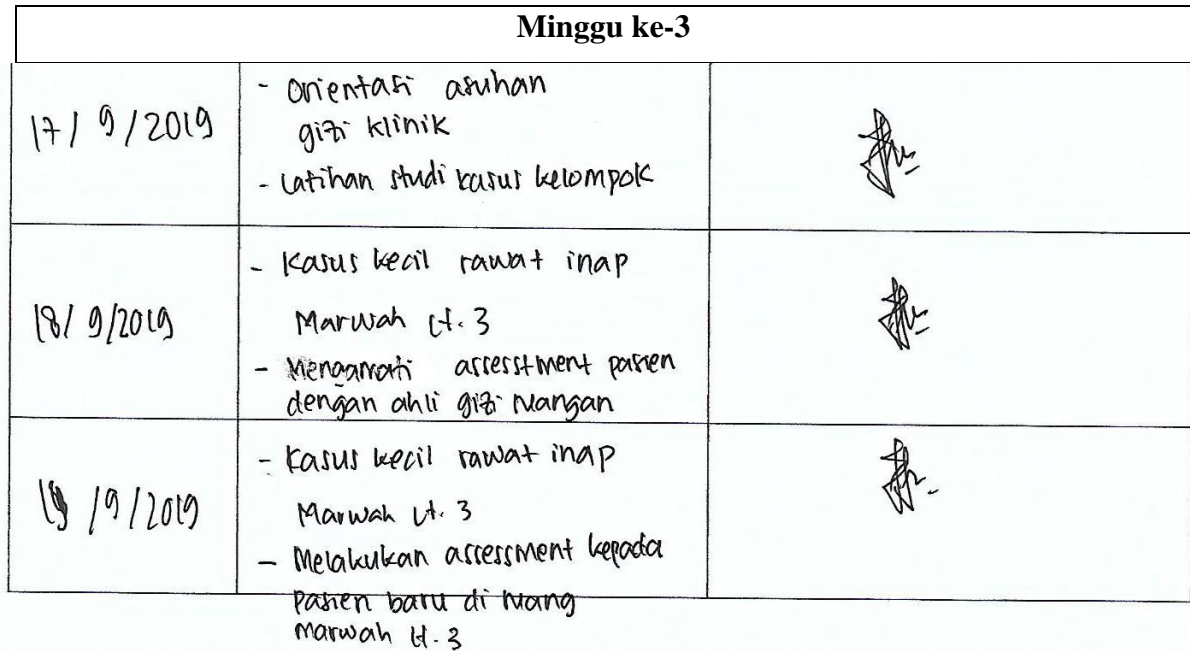 Minggu ke-3
17/ 9/2019
- Orientasi asuhan
gizi klinik
- Latihan studi kasus kelompok
18/ 9/2019
- Kasus kecil rawat inap
Marwah Lt. 3
- Mengamati assesstment pasien
dengan ahli gizi ruangan
19 /9/2019
- Kasus kecil rawat inap
Marwah Lt. 3
- Melakukan assessment kepada
pasien baru di ruang
marwah lt. 3